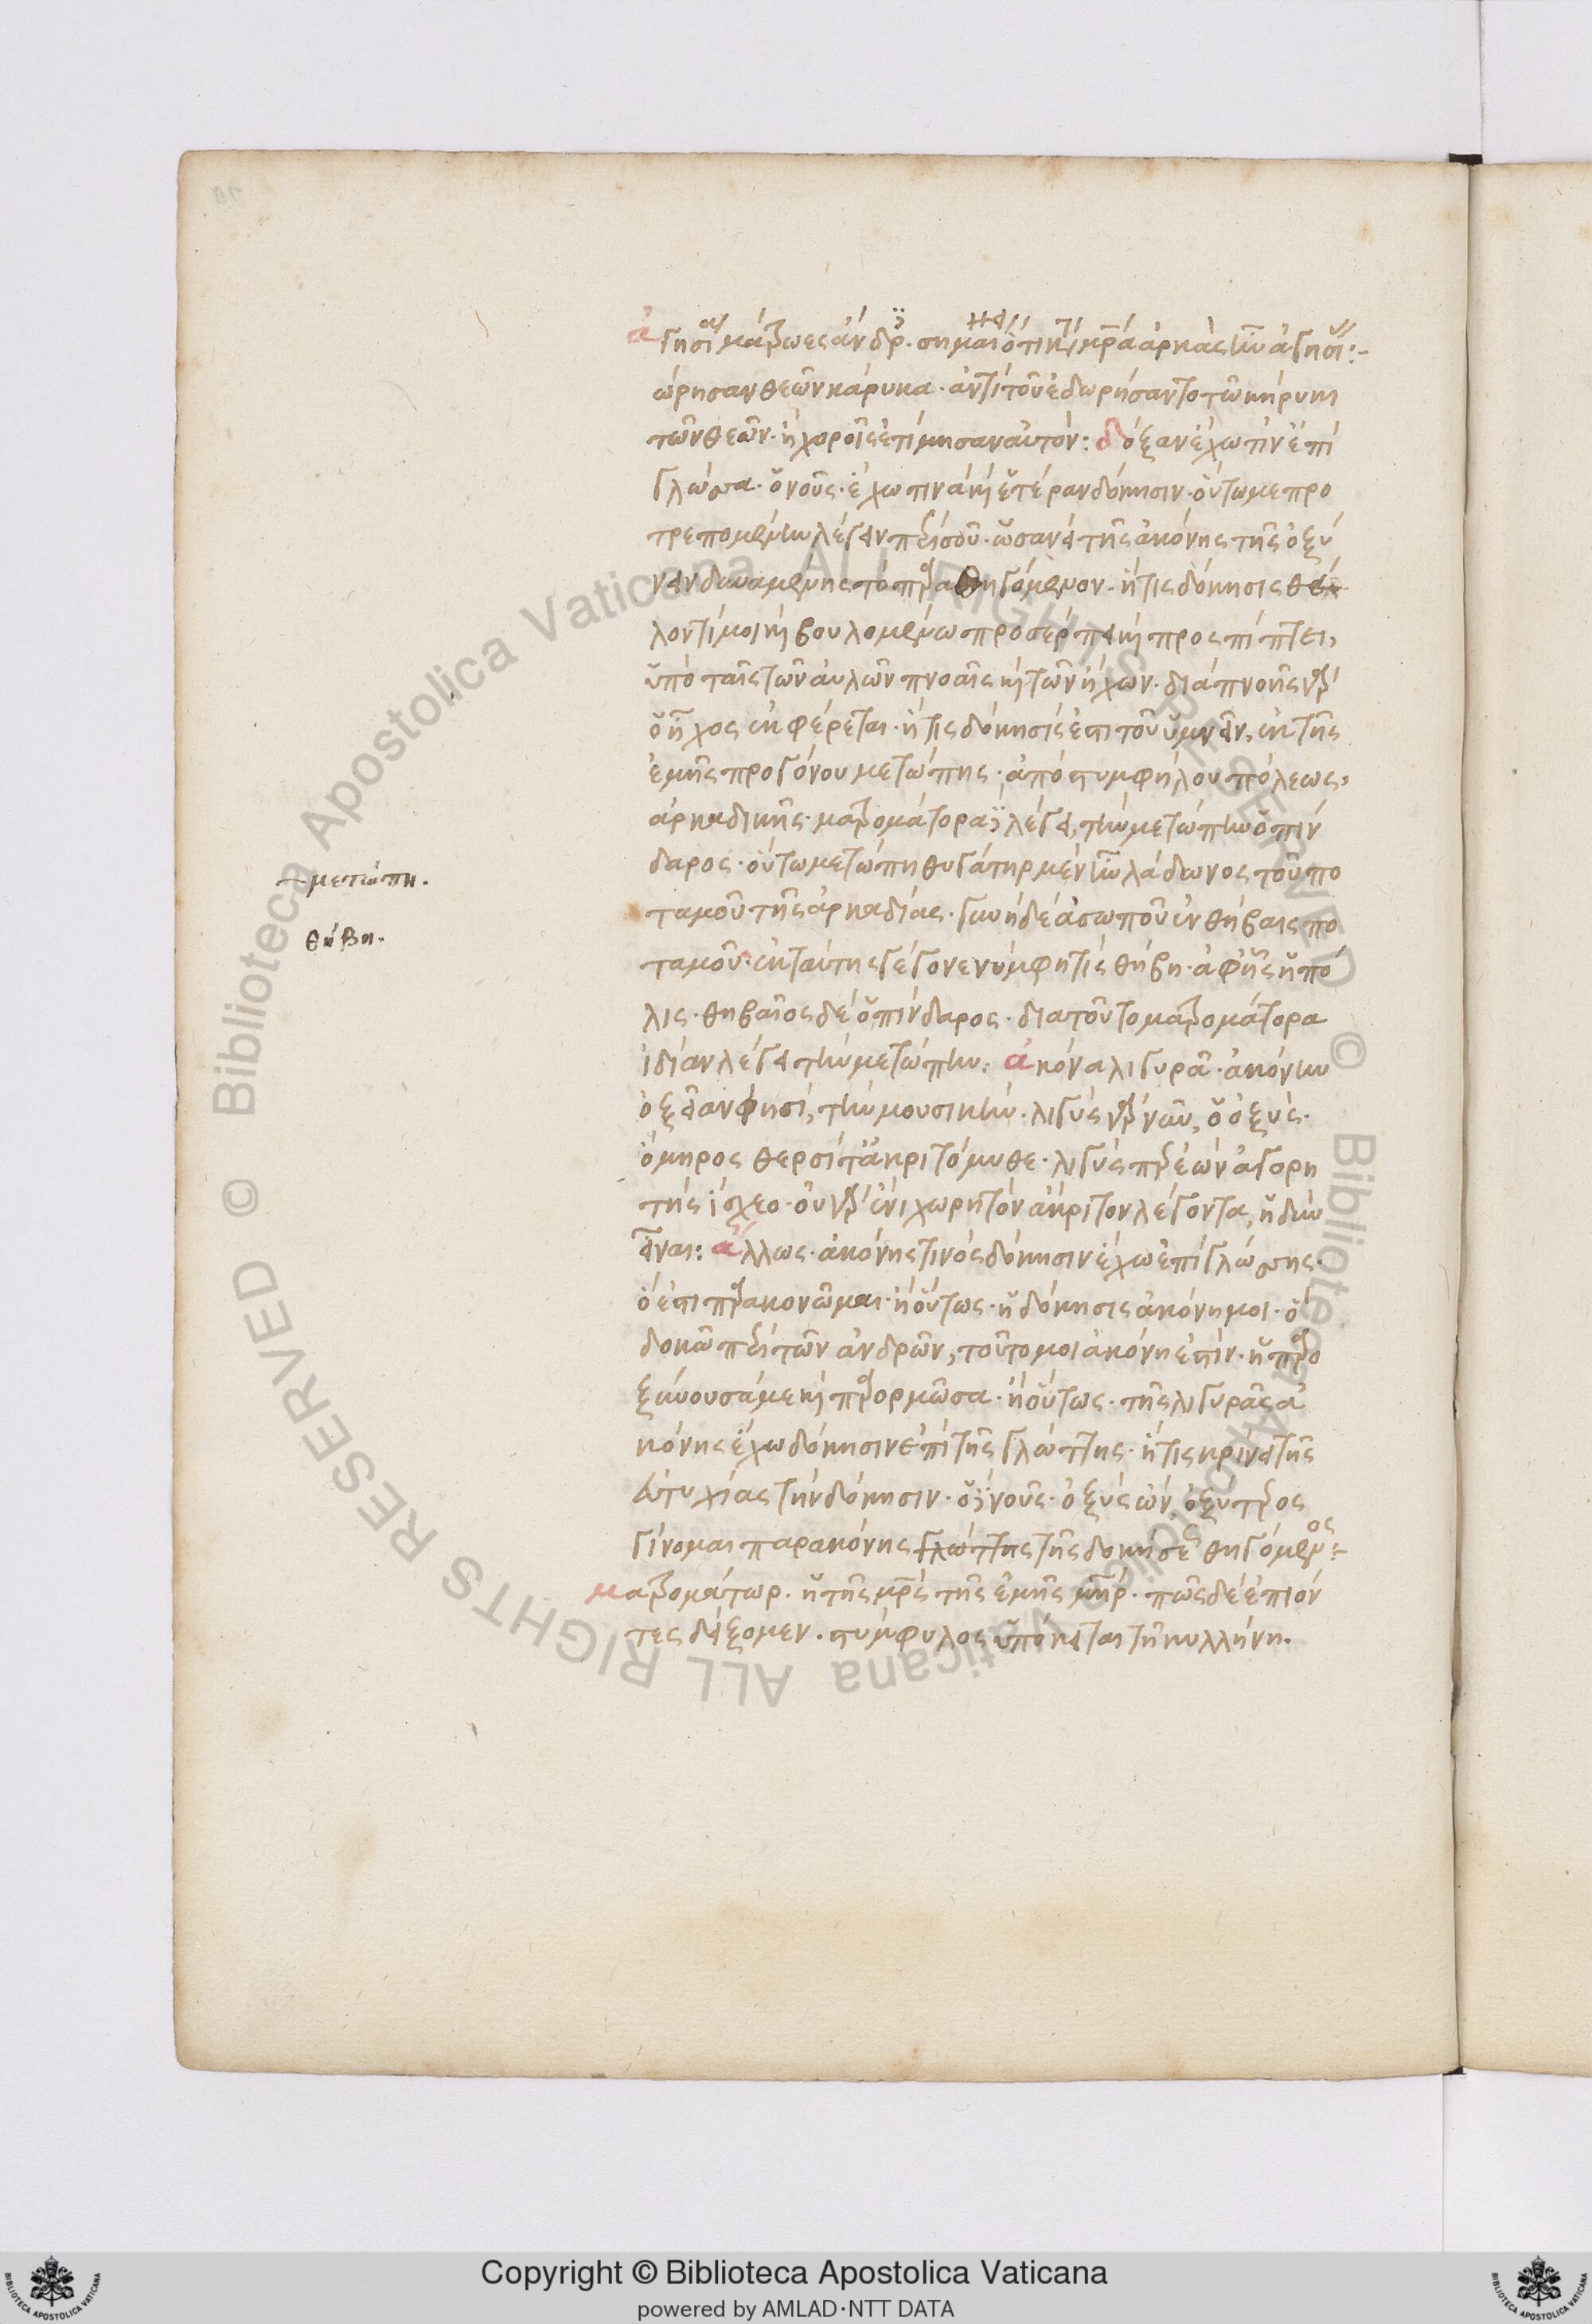 ἁγησία μάτρωες ἄνδρες. σημαίνει ὅτι καὶ κατὰ μητέρα ἀρκὰς ἦν ὁ ἁγησίας:-
ὠρησαν θεῶν κάρυκα. ἀντὶ τοῦ ἐδωρήσαντο τῶ κήρυκι
τῶν θεῶν. ἢ χοροῖς ἐτίμησαν αὐτόν: δόξαν ἔχω τιν' ἐπὶ
γλώσσα. ὁ νοῦς. ἔχω τινὰ καὶ ἑτέραν δόκησιν. οὕτω με προ
τρεπομένην λέγειν περὶ σοῦ. ὡσανεὶ τῆς ἀκόνης τῆς ὀξύ
νειν δυναμένης τὸ παρ' αὐτῆ θηγόμενον. ἥτις δόκησις θέ
λοντί μοι καὶ βουλομένω προσέρπει καὶ προσπίπτει,
ὑπὸ ταῖς τῶν αὐλῶν πνοαῖς καὶ τῶν ἤχων. διὰ πνοῆς γὰρ
ὁ ἦχος ἐκφέρεται. ἥτις δόκησίς ἐστι τοῦ ὑμνεῖν, ἐκ τῆς
ἐμῆς προγόνου μετώπης. ἀπὸ στυμφήλου πόλεως,
ἀρκαδικῆς. ματρομάτορα γὰρ λέγει, τὴν μετώπην ὁ πίν
δαρος. οὕτω μετώπη θυγάτηρ μὲν ἦν λάδωνος τοῦ πο
ταμοῦ τῆς ἀρκαδίας. γυνὴ δὲ ἀσωποῦ ἐν θήβαις πο
ταμοῦ. ἐκ ταύτης γέγονε νύμφη τίς θήβη. ἀφ' ἧς ἡ πό
λις. θηβαῖος δὲ ὁ πίνδαρος. διατοῦτο ματρομάτορα
ἰδίαν λέγει τὴν μετώπην: ἀκόνα λιγυρᾶ. ἀκόνην
ὀξεῖαν φησὶ, τὴν μουσικήν. λιγὺς γὰρ νῦν, ὁ ὀξύς.
ὅμηρος θερσῖτ' ἀκριτόμυθε. λιγύς περ ἐὼν ἀγορη
τὴς ἴσχεο. οὐ γὰρ ἐνεχώρει τὸν ἄκριτον λέγοντα, ἡδὺν
εἶναι: ἄλλως. ἀκόνης τινὸς δόκησιν ἔχω ἐπὶ γλώσσης.
ὅ ἐστι παρακονῶμαι. ἢ οὕτως. ἡ δόκησις ἀκόνη μοι. ὃ
δοκῶ περὶ τῶν ἀνδρῶν, τοῦτο μοι ἀκόνη ἐστίν. ἡ παρο
ξύνουσά με καὶ παρορμῶσα. ἢ οὕτως. τῆς λιγυρᾶς ἀ
κόνης ἔχω δόκησιν ἐπὶ τῆς γλώττης. ἥτις κρίνει τῆς
εὐτυχίας τὴν δόκησιν. ὁ γὰρ νοῦς. ὀξὺς ὢν, ὀξύτερος
γίνομαι παρακόνης γλώττης τῆς δοκήσεως θηγόμενος:-
ματρομάτωρ. ἡ τῆς μητρὸς τῆς ἐμῆς μήτηρ. πῶς δὲ ἐπιόν
τες δείξομεν. στύμφυλος ὑπόκειται τῆ κυλλήνη.
μετώπη.
θήβη.
Copyright © Biblioteca Apostolica Vaticana
powered by AMLAD·NTT DATA